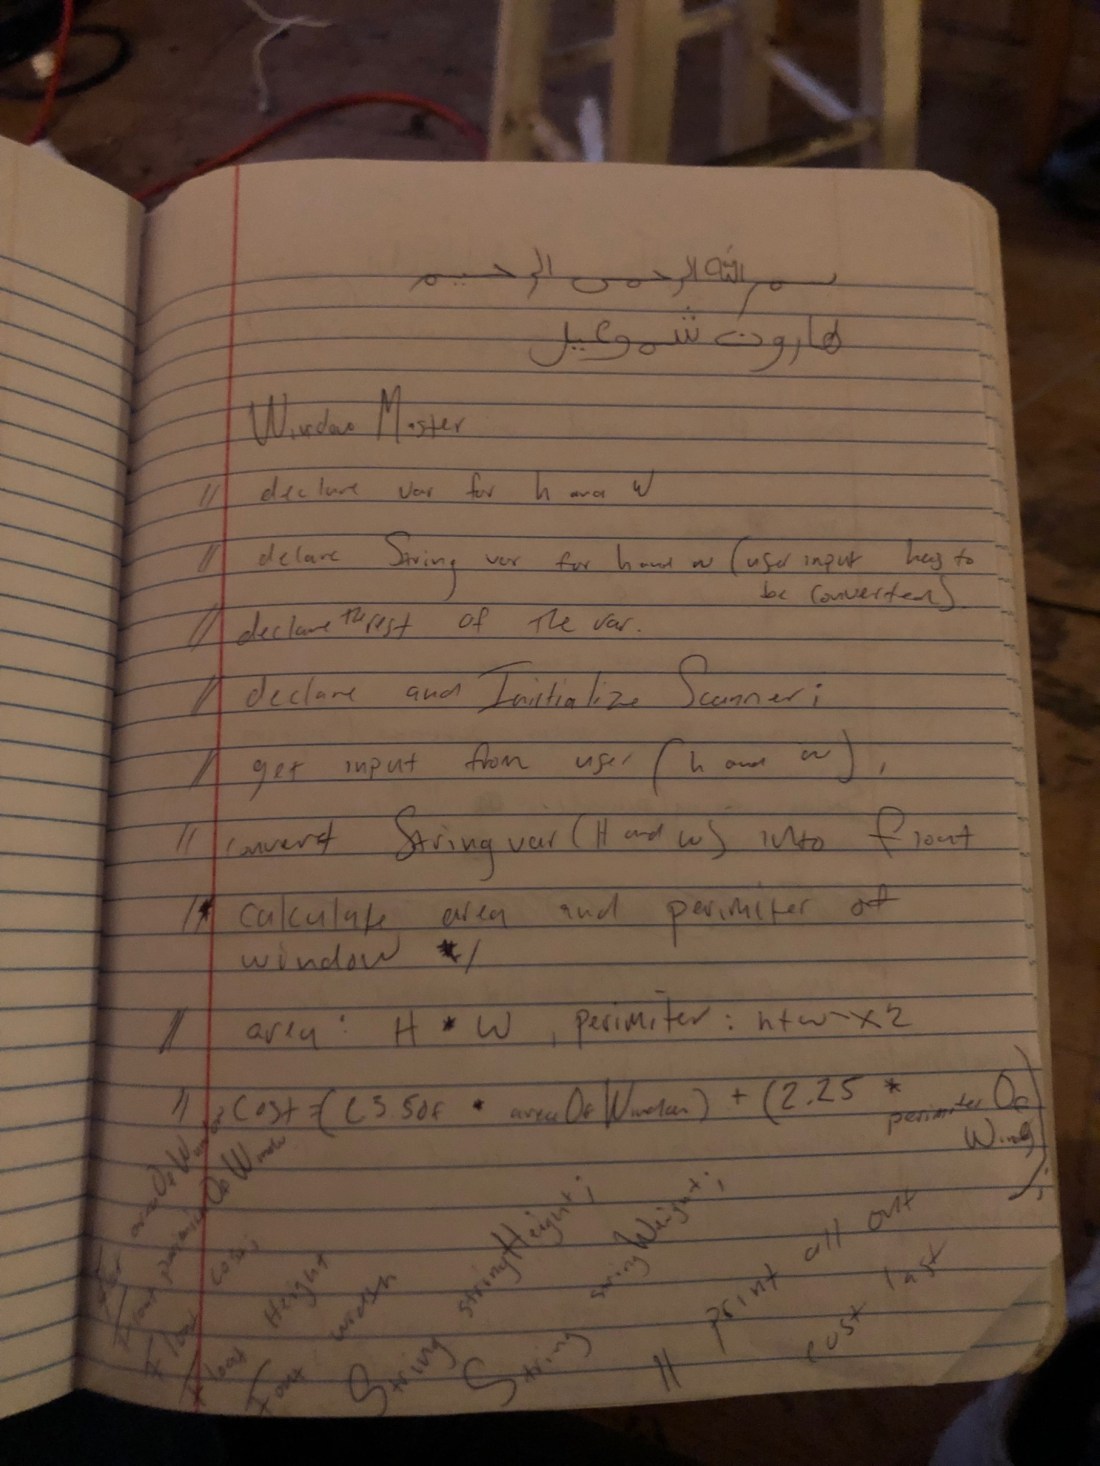 بسم الله الرحمن الرحيم
هارون شموعيل
Window Master
// declare var for h and W
// delare String var for h and w (user input has to
be converted)
// declare the rest of the var.
// declare and Initialize Scanner;
// get input from user (h and w),
// convert String var (H and w) into float
/* calculate area and perimiter of
window */
// area: H * W , perimiter: h+w x2
// cost = (3.50f * areaOfWindow) + (2.25 *
perimiterOf
Wind);
float areaOfWindow
float perimiterOfWindow
float cost;
float Height
float width
String stringHeight;
String stringWeight;
// print all out
cost last